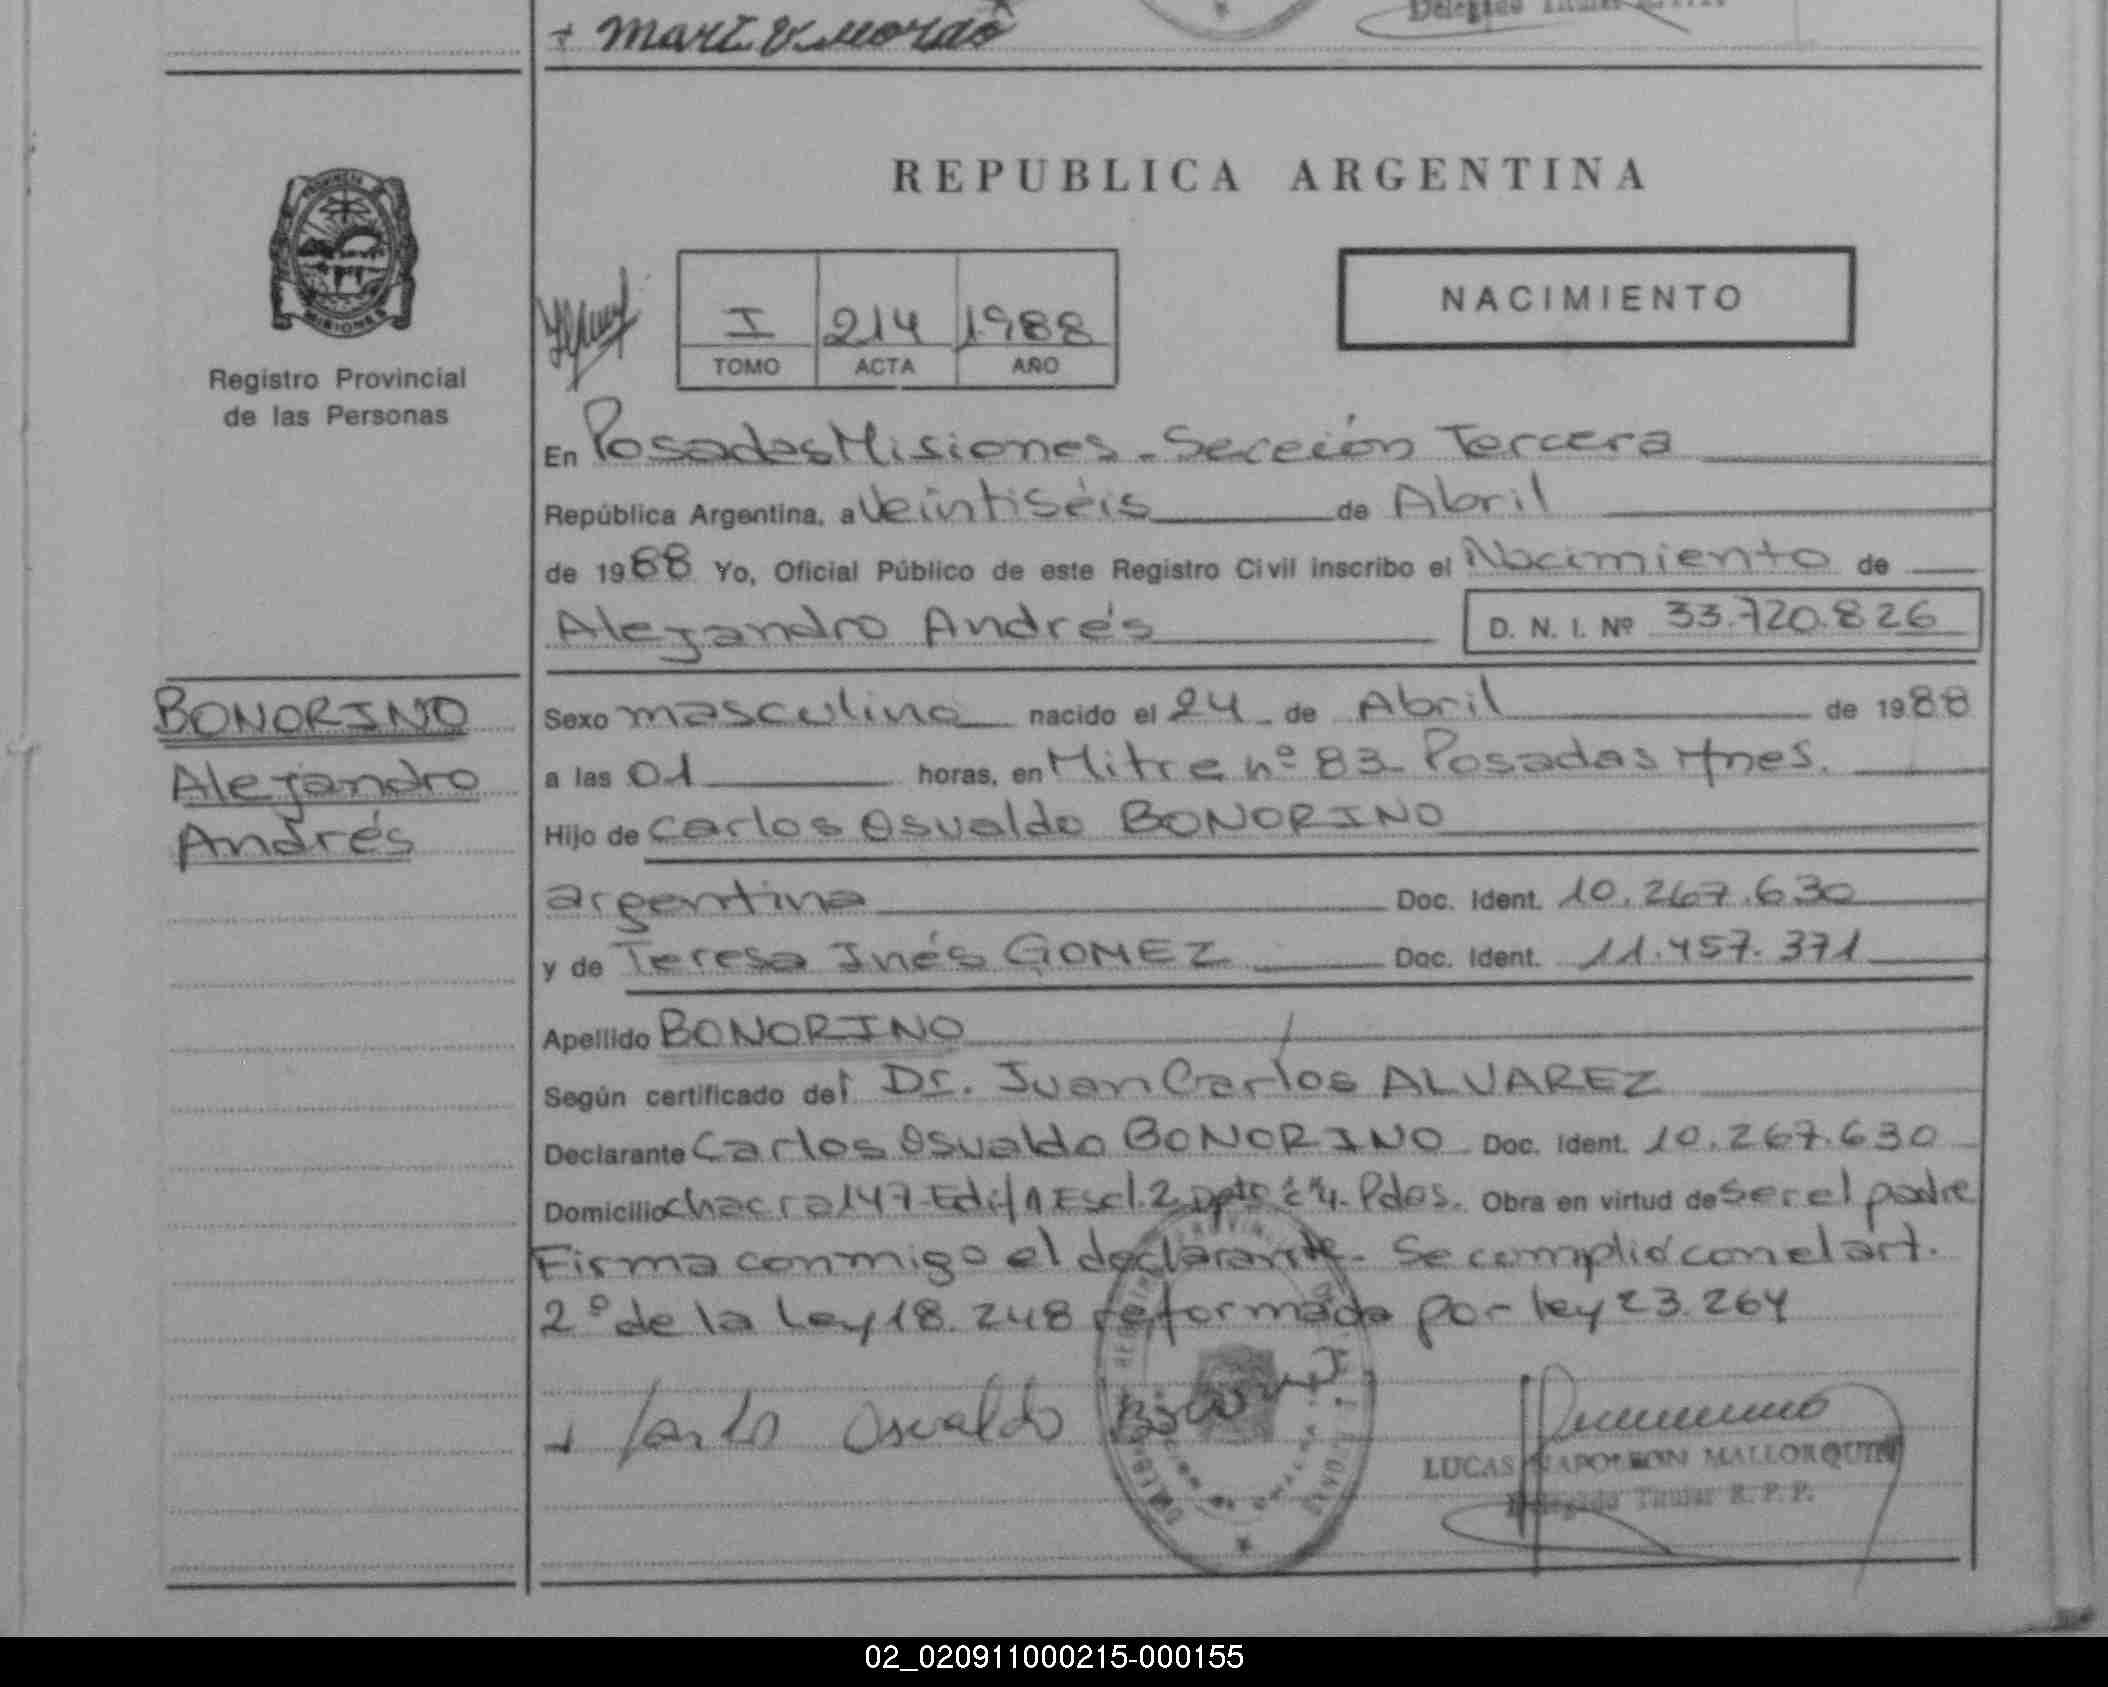 Delegado Titular R.P.P.
REPUBLICA ARGENTINA
PROVINCIA DE
MISIONES
Registro Provincial
de las Personas
NACIMIENTO
I 214 1988
TOMO ACTA AÑO
En Posadas Misiones - Sección Tercera
República Argentina, a Veintiséis de Abril
de 1988 Yo, Oficial Público de este Registro Civil inscribo el Nacimiento de
Alejandro Andrés D. N. I. Nº 33.720.826
BONORINO
Alejandro
Andrés
Sexo masculino nacido el 24 de Abril de 1988
a las 01 horas, en Mitre nº 83 - Posadas Mnes.
Hijo de Carlos Osvaldo BONORINO
argentina Doc. Ident. 10.267.630
y de Teresa Inés GOMEZ Doc. Ident. 11.457.371
Apellido BONORINO
Según certificado del Dr. Juan Carlos ALVAREZ
Declarante Carlos Osvaldo BONORINO Doc. Ident. 10.267.630
Domicilio chacra 147 - Edif 1 Escl. 2 Dpto "4 - Pdas. Obra en virtud de ser el padre
Firma conmigo el declarante - Se cumplió con el art.
2º de la Ley 18.248 reformada por ley 23.264
Carlos Osvaldo Bonorino
LUCAS NAPOLEON MALLORQUIN
Delegado Titular R. P. P.
02_020911000215-000155